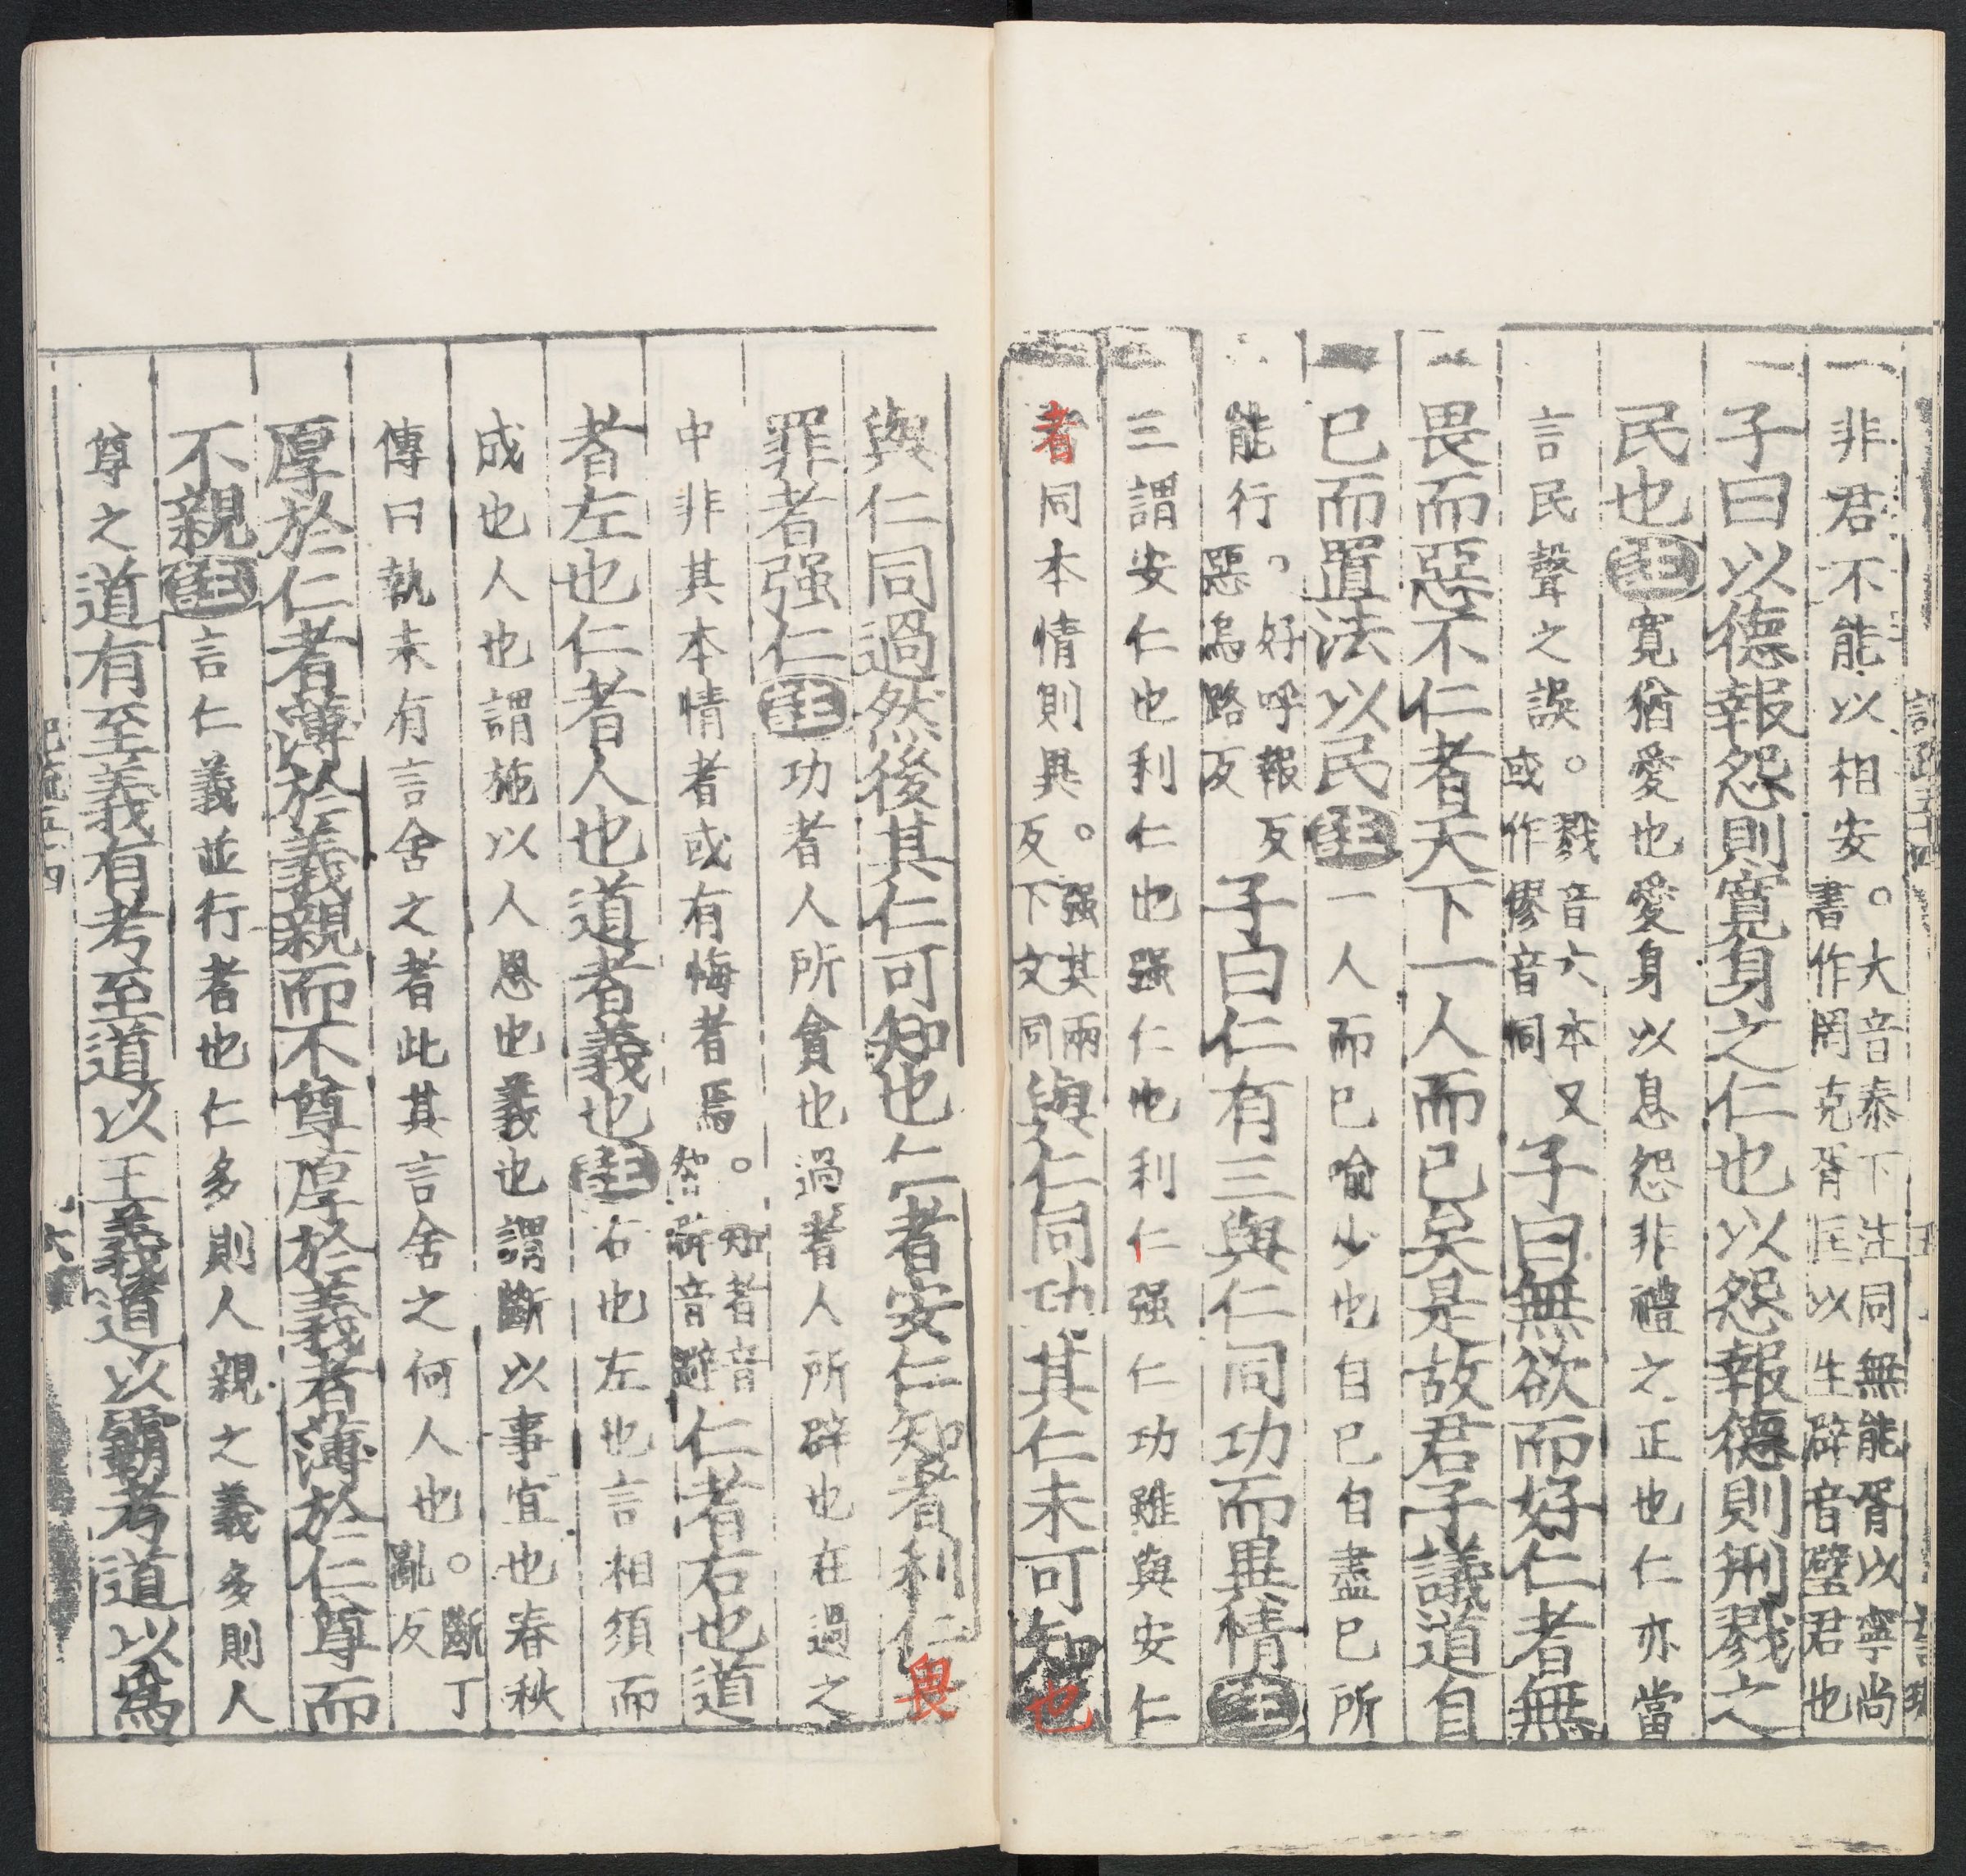 非君不能以相安。大音泰下注同無能胥以寧尚書作罔克胥匡以生辟音璧君也
子曰以德報怨則寬身之仁也以怨報德則刑戮之
民也注寬猶愛也愛身以息怨非禮之正也仁亦當
言民聲之誤。戮音六本又或作僇音同子曰無欲而好仁者無
畏而惡不仁者天下一人而已矣是故君子議道自
已而置法以民注一人而已喻少也自已自盡已所
能行。好呼報反惡烏路反子曰仁有三與仁同功而異情注
三謂安仁也利仁也强仁也利仁强仁功雖與安仁
者同本情則異。强其兩反下文同與仁同功其仁未可知也
與仁同過然後其仁可知也仁者安仁知者利仁畏
罪者强仁注功者人所貪也過者人所辟也在過之
中非其本情者或有悔者焉。知者音智辟音避仁者右也道
者左也仁者人也道者義也注右也左也言相須而
成也人也謂施以人恩也義也謂斷以事宜也春秋
傳曰執未有言舍之者此其言舍之何人也。斷丁亂反
厚於仁者薄於義親而不尊厚於義者薄於仁尊而
不親注言仁義並行者也仁多則人親之義多則人
尊之道有至義有考至道以王義道以霸考道以為